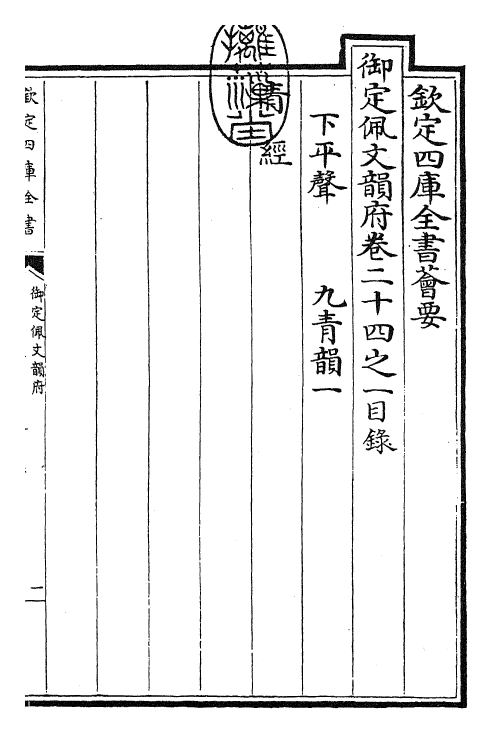 欽定四庫全書薈要
御定佩文韻府卷二十四之一目錄
下平聲 九青韻一
青 經
欽定四庫全書
御定佩文韻府
一